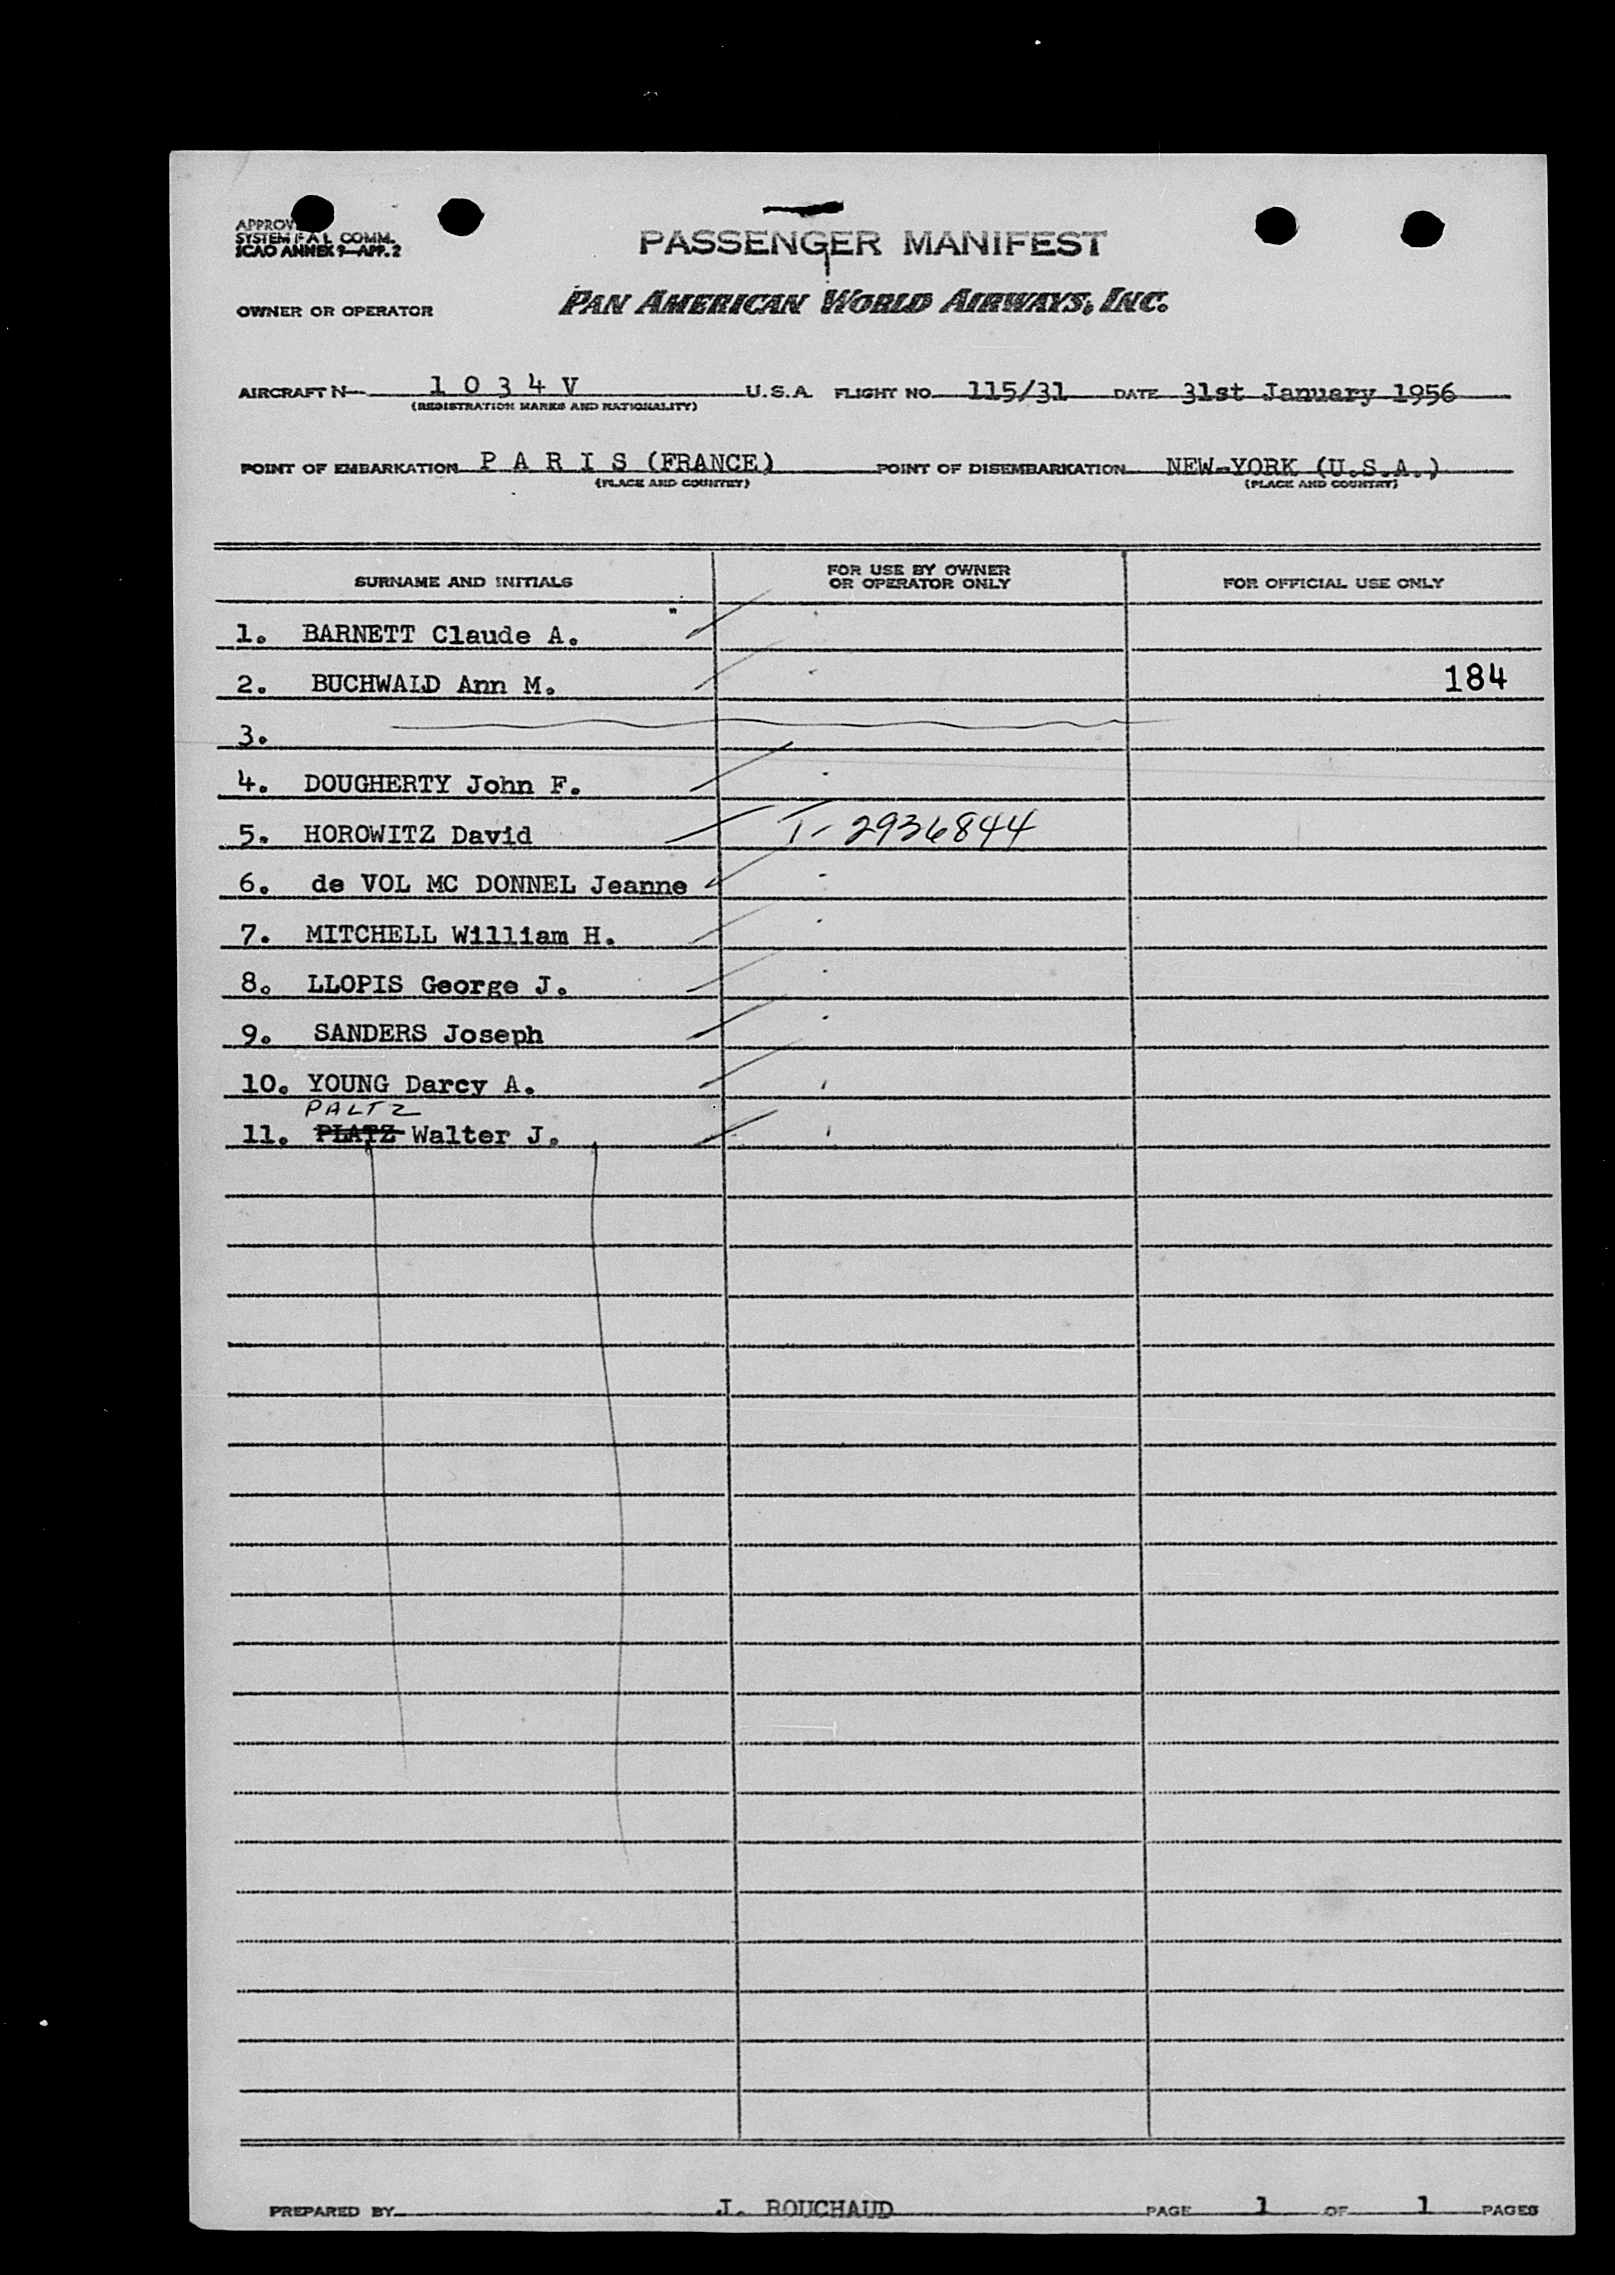 PASSENGER MANIFEST
SYSTEM FAL COMM.
ICAO ANNEX 9—APP. 2
OWNER OR OPERATOR PAN AMERICAN WORLD AIRWAYS, INC.
AIRCRAFT N 1 0 3 4 V U.S.A. FLIGHT NO. 115/31 DATE 31st January 1956
(REGISTRATION MARKS AND NATIONALITY)
POINT OF EMBARKATION P A R I S (FRANCE) POINT OF DISEMBARKATION NEW-YORK (U.S.A.)
(PLACE AND COUNTRY) (PLACE AND COUNTRY)
SURNAME AND INITIALS FOR USE BY OWNER OR OPERATOR ONLY FOR OFFICIAL USE ONLY
1. BARNETT Claude A.
2. BUCHWALD Ann M. 184
3.
4. DOUGHERTY John F.
5. HOROWITZ David T- 2936844
6. de VOL MC DONNEL Jeanne
7. MITCHELL William H.
8. LLOPIS George J.
9. SANDERS Joseph
10. YOUNG Darcy A.
PALTZ
11. PLATZ Walter J.
PREPARED BY J. ROUCHAUD PAGE 1 OF 1 PAGES